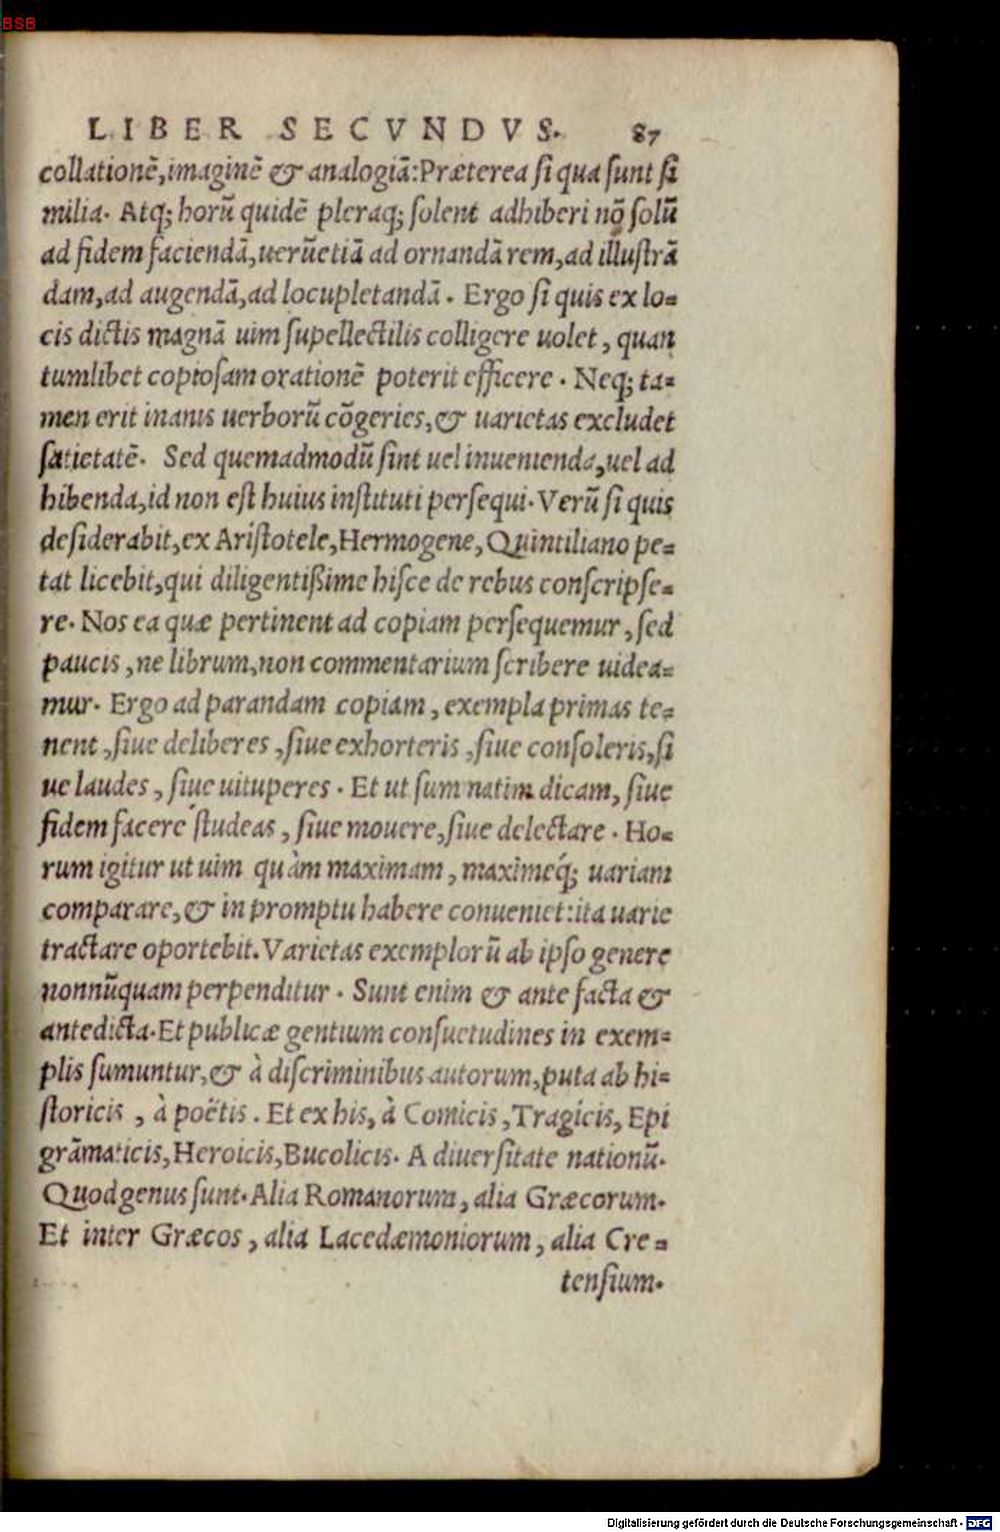 BSB
LIBER SECVNDVS. 87
collationẽ, imaginẽ & analogiã: Præterea ſi qua ſunt ſi
milia. Atq; horũ quidẽ pleraq; ſolent adhiberi nõ ſolũ
ad fidem faciendã, uerũetiã ad ornandã rem, ad illuſtrã
dam, ad augendã, ad locupletandã. Ergo ſi quis ex lo=
cis dictis magnã uim ſupellectilis colligere uolet, quan
tumlibet copioſam orationẽ poterit efficere. Neq; ta=
men erit inanis uerborũ cõgeries, & uarietas excludet
ſatietatẽ. Sed quemadmodũ ſint uel inuenienda, uel ad
hibenda, id non eſt huius inſtituti perſequi. Verũ ſi quis
deſiderabit, ex Ariſtotele, Hermogene, Quintiliano pe=
tat licebit, qui diligentißime hiſce de rebus conſcripſe=
re. Nos ea quæ pertinent ad copiam perſequemur, ſed
paucis, ne librum, non commentarium ſcribere uidea=
mur. Ergo ad parandam copiam, exempla primas te=
nent, ſiue deliberes, ſiue exhorteris, ſiue conſoleris, ſi
ue laudes, ſiue uituperes. Et ut ſummatim dicam, ſiue
fidem facere ſtudeas, ſiue mouere, ſiue delectare. Ho=
rum igitur ut uim quàm maximam, maximeq́; uariam
comparare, & in promptu habere conueniet: ita uarie
tractare oportebit. Varietas exemplorũ ab ipſo genere
nonnũquam perpenditur. Sunt enim & ante facta &
antedicta. Et publicæ gentium conſuetudines in exem=
plis ſumuntur, & à diſcriminibus autorum, puta ab hi=
ſtoricis, à poëtis. Et ex his, à Comicis, Tragicis, Epi
grãmaticis, Heroicis, Bucolicis. A diuerſitate nationũ.
Quod genus ſunt. Alia Romanorum, alia Græcorum.
Et inter Græcos, alia Lacedæmoniorum, alia Cre=
tenſium.
Digitalisierung gefördert durch die Deutsche Forschungsgemeinschaft - DFG